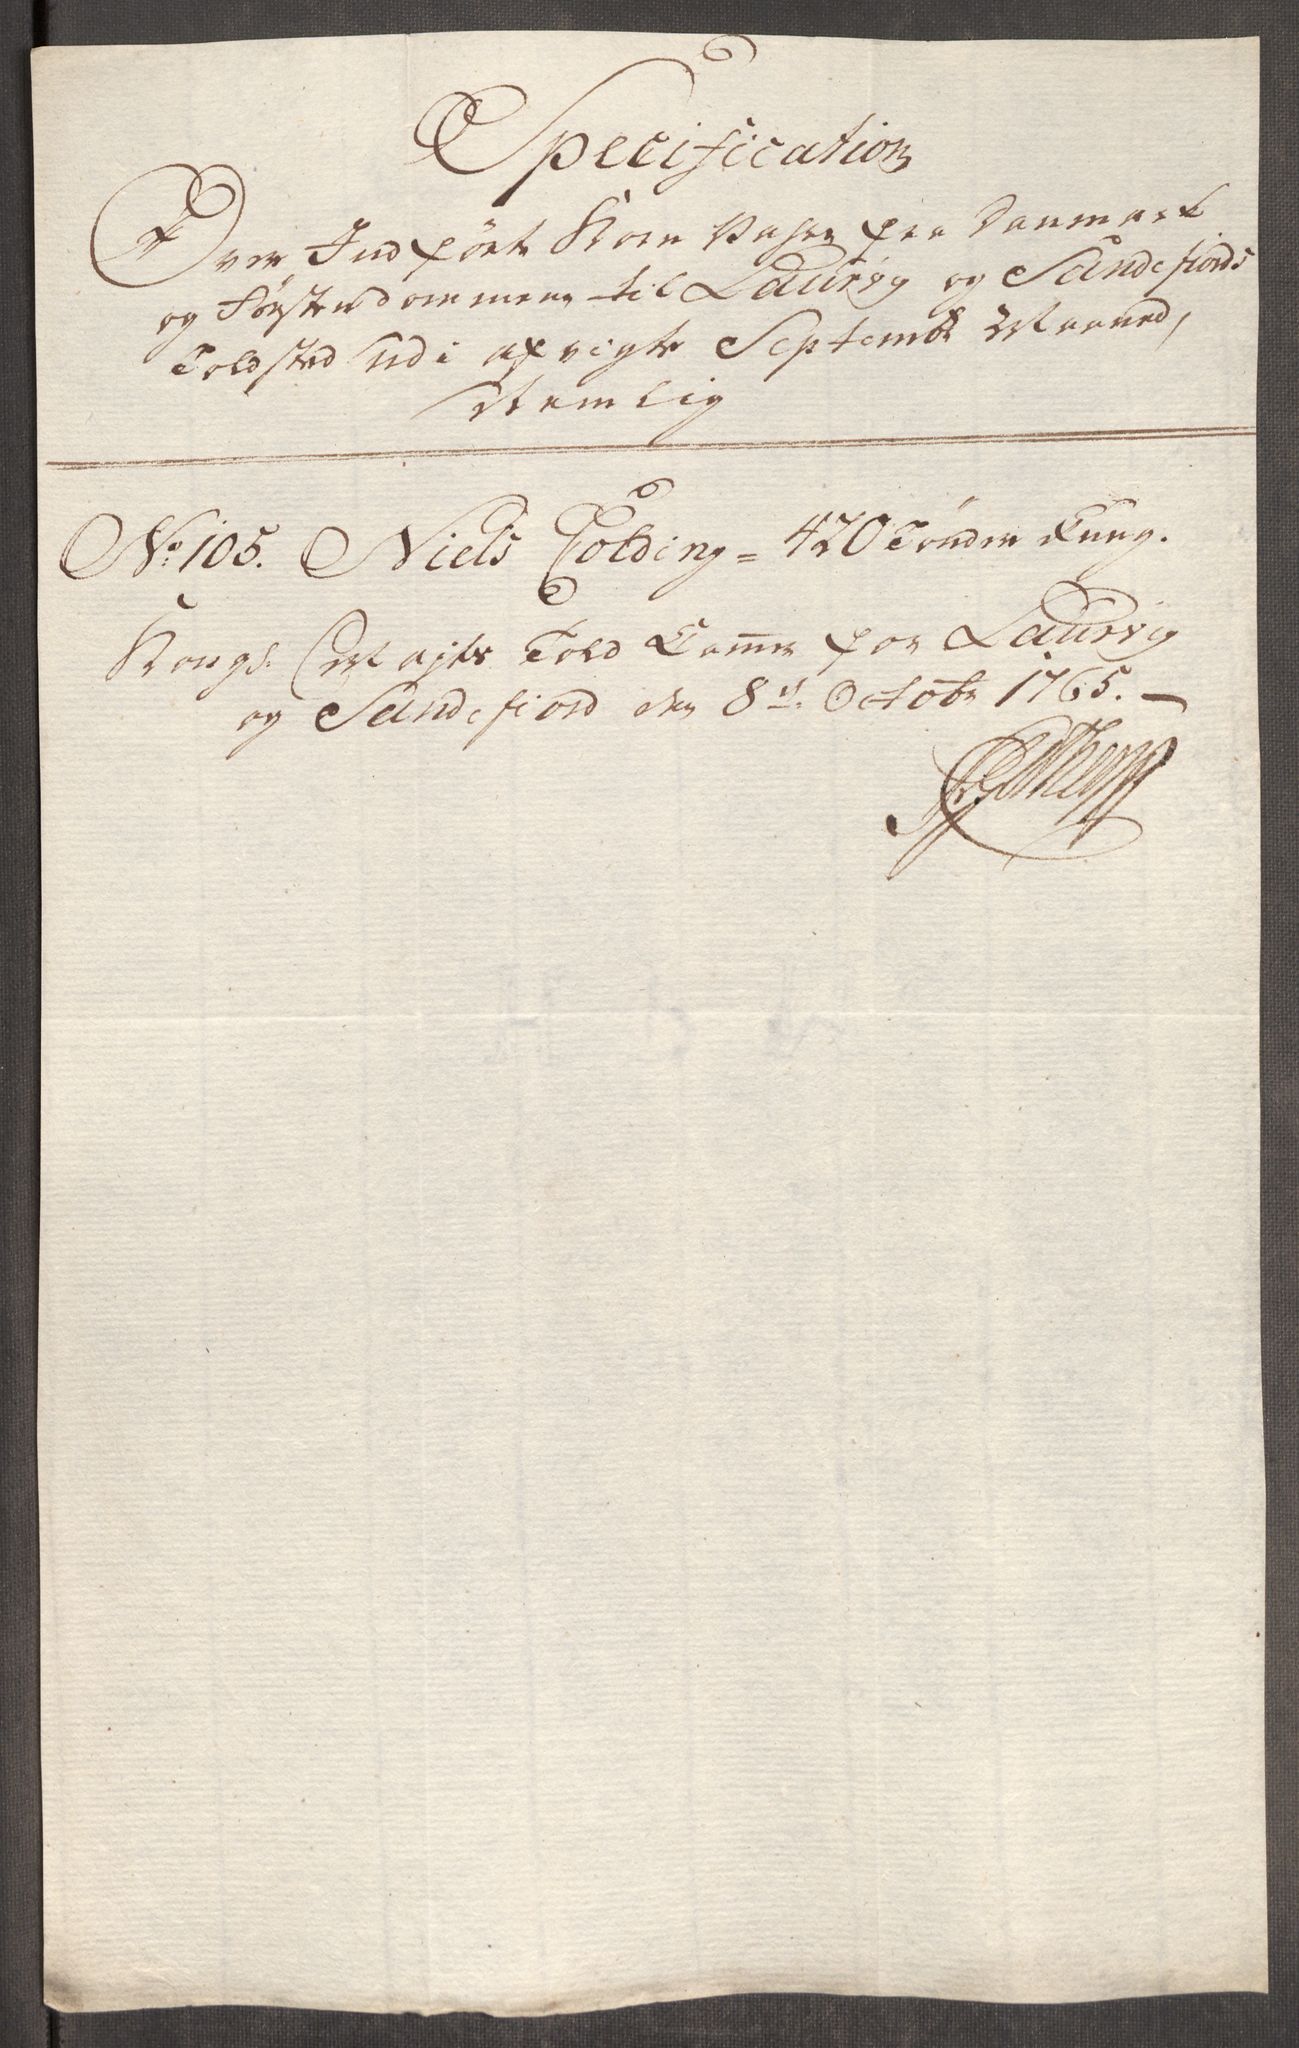 Specification
Over Indförte Korn Vahre fra Danmark
og Förstendommene til Laurvig og Sandefiords
Toldsted udi afvigte Septembr Maaned,
Nemlig
No: 105. Niels Colding = 420 Tönder Rug.
Kongl. Mayts Told Camer for Laurvig
og Sandefiord den 8de. Octobr 1765. —